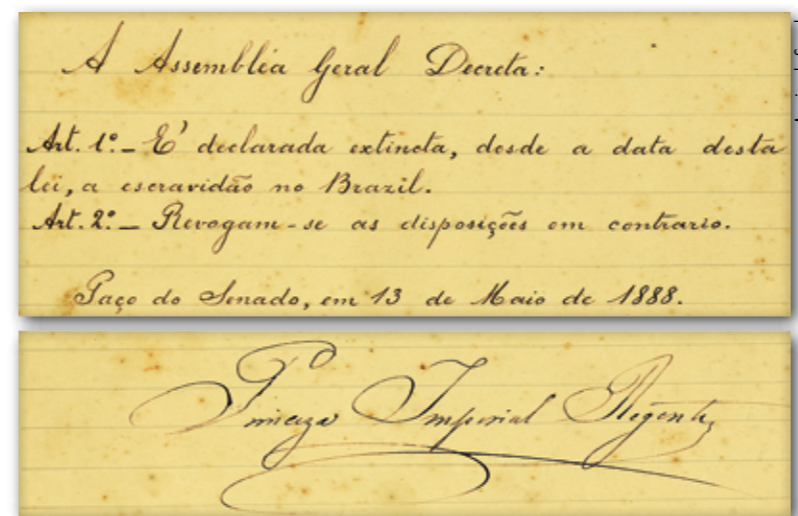 A Assembléa Geral Decreta:
Art. 1º._ E' declarada extincta, desde a data desta
lei, a escravidão no Brazil.
Art. 2º._ Revogam-se as disposições em contrario.
Paço do Senado, em 13 de Maio de 1888.
Princeza Imperial Regente